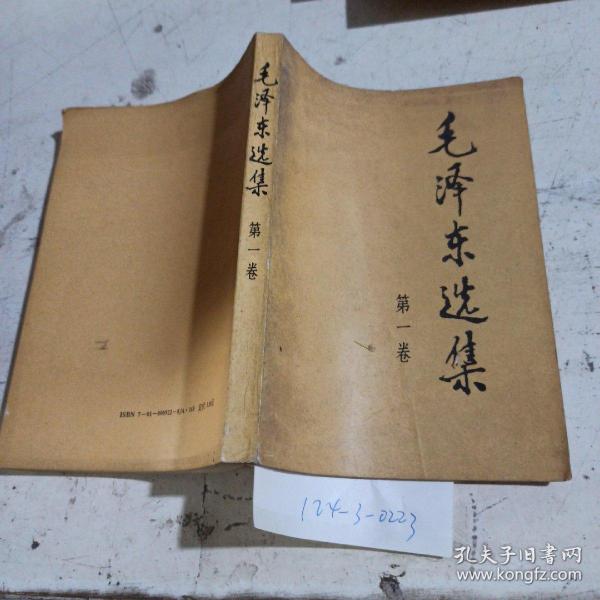 毛泽东选集
第一卷
毛泽东选集
第一卷
ISBN 7-01-000922-8/A·
124-3-0223
孔夫子旧书网
www.kongfz.com